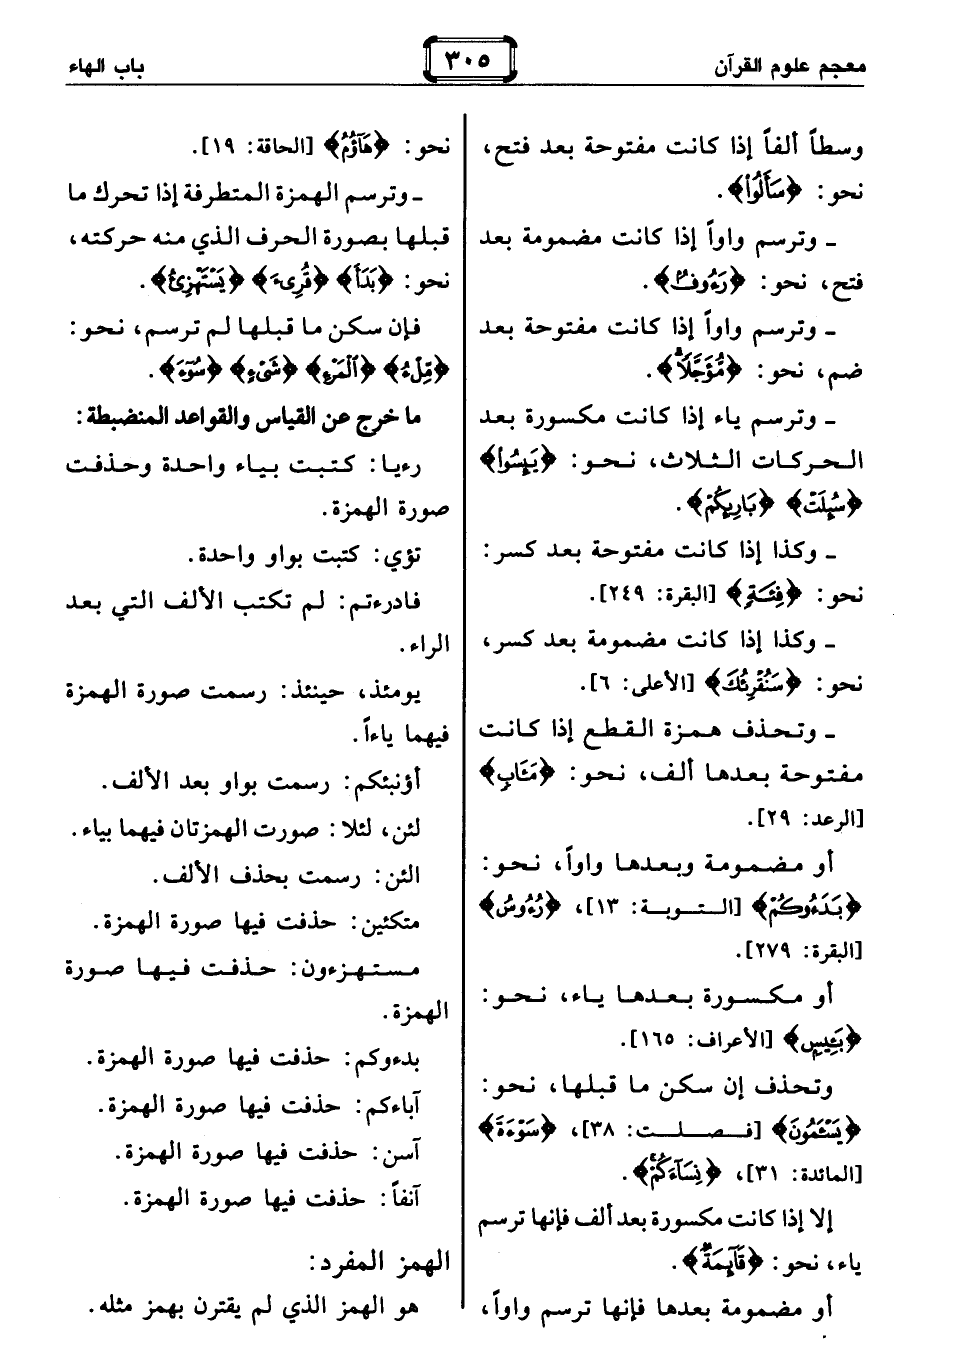 معجم علوم القرآن
٣٠٥
باب الهاء
وسطاً ألفاً إذا كانت مفتوحة بعد فتح،
نحو: ﴿سَأَلُواْ﴾.
ـ وترسم واواً إذا كانت مضمومة بعد
فتح، نحو: ﴿رَءُوفٌ﴾.
ـ وترسم واواً إذا كانت مفتوحة بعد
ضم، نحو: ﴿مُّؤَجَّلًا﴾.
ـ وترسم ياء إذا كانت مكسورة بعد
الحركات الثلاث، نحو: ﴿يَئِسُواْ﴾
﴿سُئِلَتْ﴾ ﴿بَارِئِكُمْ﴾.
ـ وكذا إذا كانت مفتوحة بعد كسر:
نحو: ﴿فِئَةٍ﴾ [البقرة: ٢٤٩].
ـ وكذا إذا كانت مضمومة بعد كسر،
نحو: ﴿سَنُقْرِئُكَ﴾ [الأعلى: ٦].
ـ وتحذف همزة القطع إذا كانت
مفتوحة بعدها ألف، نحو: ﴿مَـَٔابٍ﴾
[الرعد: ٢٩].
أو مضمومة وبعدها واواً، نحو:
﴿بَدَءُوكُمْ﴾ [التوبة: ١٣]، ﴿رُءُوسُ﴾
[البقرة: ٢٧٩].
أو مكسورة بعدها ياء، نحو:
﴿بَـِٔيسٍ﴾ [الأعراف: ١٦٥].
وتحذف إن سكن ما قبلها، نحو:
﴿يَسْـَٔمُونَ﴾ [فصلت: ٣٨]، ﴿سَوْءَةَ﴾
[المائدة: ٣١]، ﴿نِسَآءَكُمْ﴾.
إلا إذا كانت مكسورة بعد ألف فإنها ترسم
ياء، نحو: ﴿قَآئِمَةٌ﴾.
أو مضمومة بعدها فإنها ترسم واواً،
نحو: ﴿هَآؤُمُ﴾ [الحاقة: ١٩].
ـ وترسم الهمزة المتطرفة إذا تحرك ما
قبلها بصورة الحرف الذي منه حركته،
نحو: ﴿بَدَأَ﴾ ﴿قُرِىءَ﴾ ﴿يَسْتَهْزِئُ﴾.
فإن سكن ما قبلها لم ترسم، نحو:
﴿مِّلْءُ﴾ ﴿ٱلْمَرْءِ﴾ ﴿شَىْءٍ﴾ ﴿سُوٓءَ﴾.
ما خرج عن القياس والقواعد المنضبطة:
رءيا: كتبت بياء واحدة وحذفت
صورة الهمزة.
تؤي: كتبت بواو واحدة.
فادرءتم: لم تكتب الألف التي بعد
الراء.
يومئذ، حينئذ: رسمت صورة الهمزة
فيهما ياءاً.
أؤنبئكم: رسمت بواو بعد الألف.
لئن، لئلا: صورت الهمزتان فيهما بياء.
الئن: رسمت بحذف الألف.
متكئين: حذفت فيها صورة الهمزة.
مستهزءون: حذفت فيها صورة
الهمزة.
بدءوكم: حذفت فيها صورة الهمزة.
آباءكم: حذفت فيها صورة الهمزة.
آسن: حذفت فيها صورة الهمزة.
آنفاً: حذفت فيها صورة الهمزة.
الهمز المفرد:
هو الهمز الذي لم يقترن بهمز مثله.